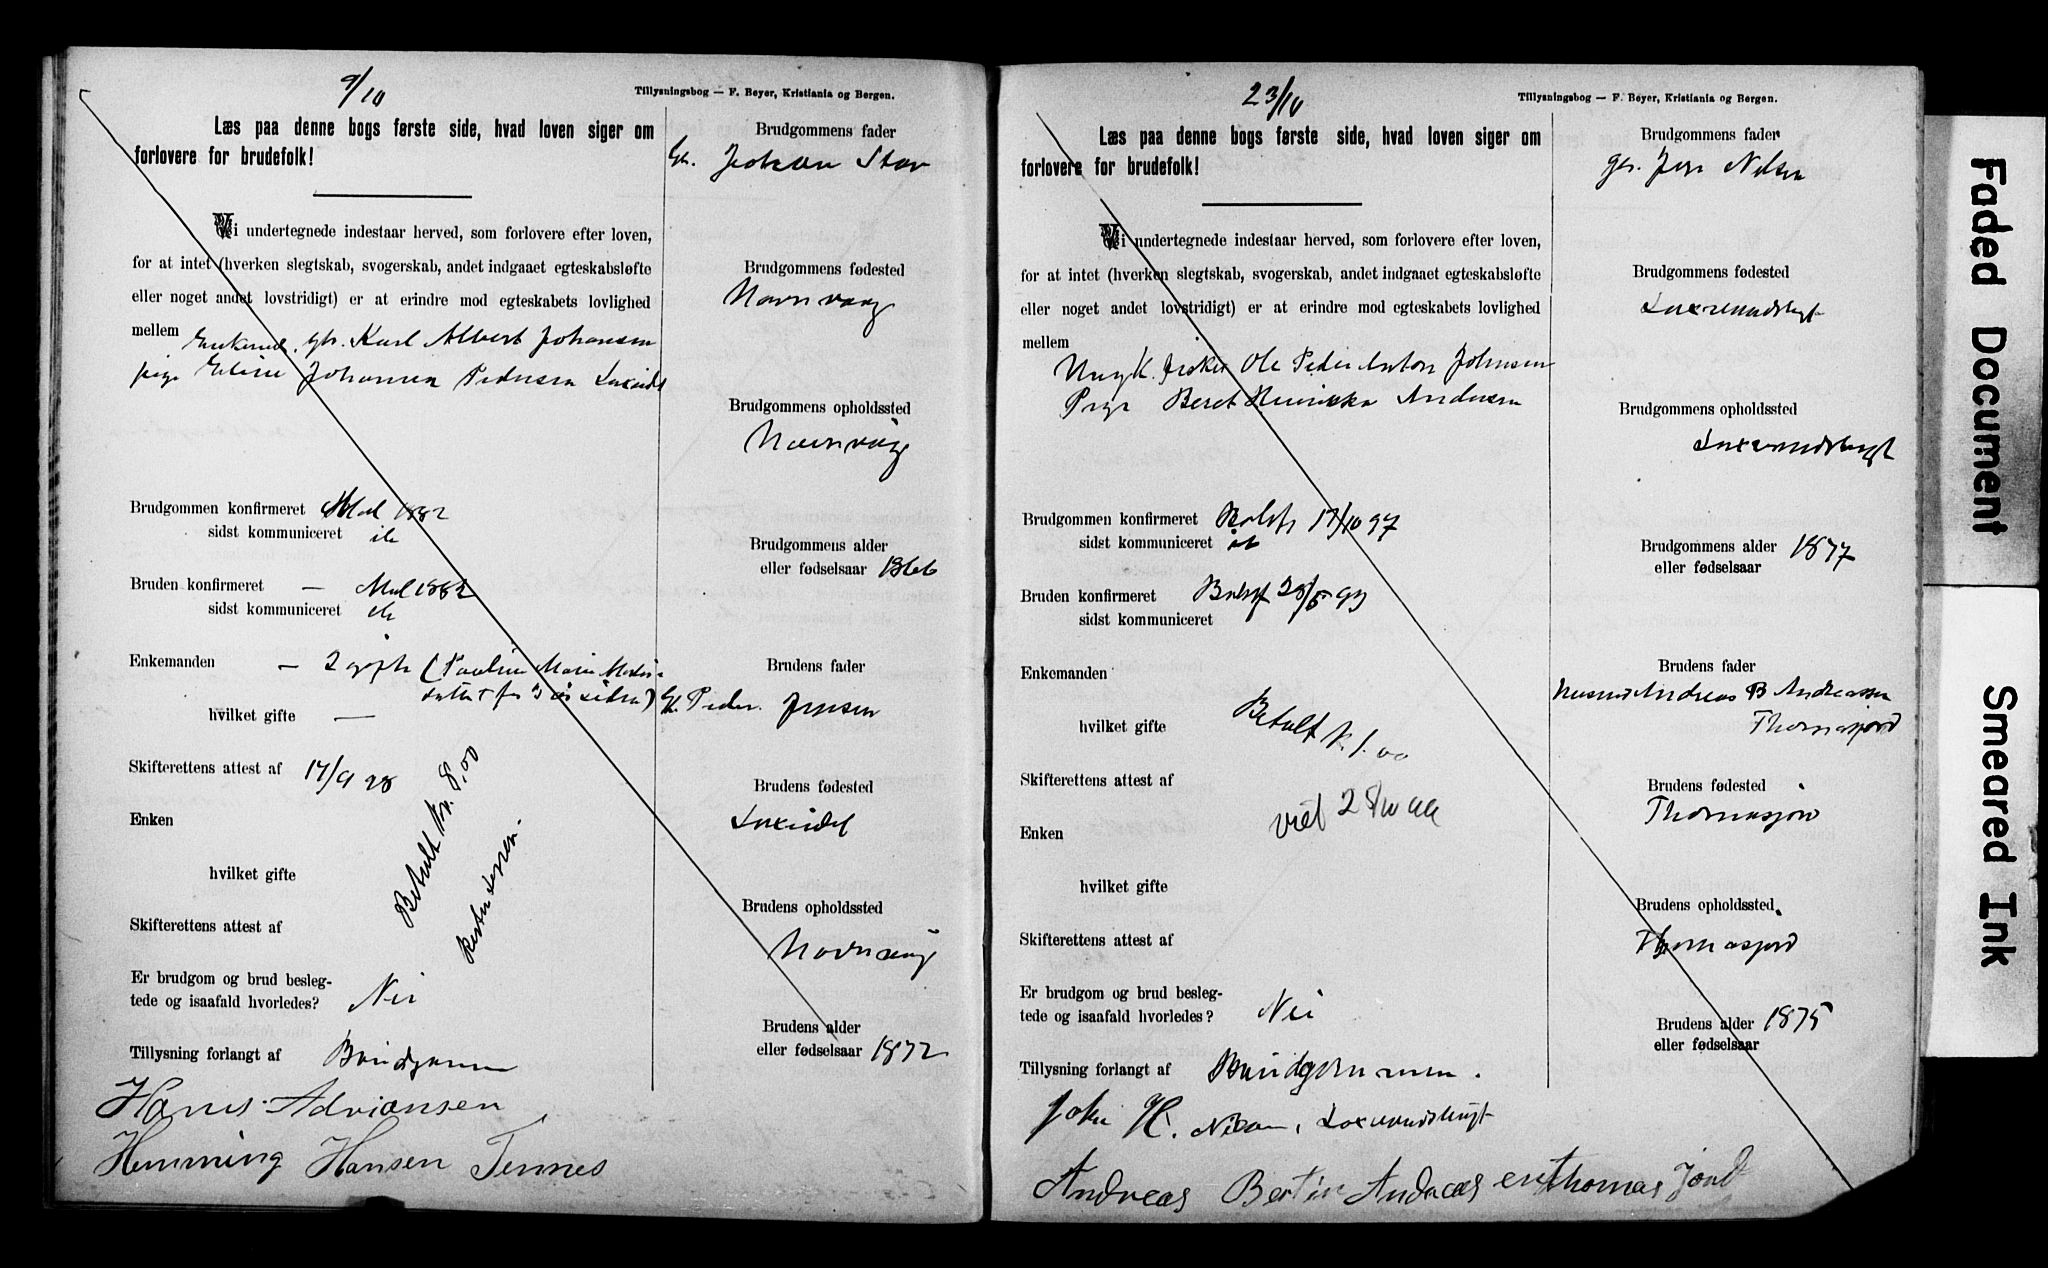 9/10
Tillysningsbog — F. Beyer, Kristiania og Bergen.
Læs paa denne bogs første side, hvad loven siger om
forlovere for brudefolk!
Vi undertegnede indestaar herved, som forlovere efter loven,
for at intet (hverken slegtskab, svogerskab, andet indgaaet egteskabsløfte
eller noget andet lovstridigt) er at erindre mod egteskabets lovlighed
mellem
Karl Albert Johansen
pige Eline Johanna Pedersen
Brudgommen konfirmeret 1882
sidst kommuniceret
Bruden konfirmeret — 1882
sidst kommuniceret
Enkemanden — 2 (Pauline Marie
hvilket gifte —
Skifterettens attest af 17/9 98
Enken
hvilket gifte
Betalt Kr. 8,00
Skifterettens attest af
Er brudgom og brud besleg-
tede og isaafald hvorledes? Nei
Tillysning forlangt af Brudgommen
Hans Adriansen
Henming Hansen Tennes
Brudgommens fader
Johan
Brudgommens fødested
Navnvaag
Brudgommens opholdssted
Navnvaag
Brudgommens alder
eller fødselsaar 1866
Brudens fader
Peder Jensen
Brudens fødested
Brudens opholdssted
Navnvaag
Brudens alder
eller fødselsaar 1872
23/10
Tillysningsbog — F. Beyer, Kristiania og Bergen.
Læs paa denne bogs første side, hvad loven siger om
forlovere for brudefolk!
Vi undertegnede indestaar herved, som forlovere efter loven,
for at intet (hverken slegtskab, svogerskab, andet indgaaet egteskabsløfte
eller noget andet lovstridigt) er at erindre mod egteskabets lovlighed
mellem
Ungk. fisker Ole Peder Anton Johnsen
Pige Beret Henrikka Andersen
Brudgommen konfirmeret Balsfj 17/10 97
sidst kommuniceret
Bruden konfirmeret Balsfj 28/5 93
sidst kommuniceret
Enkemanden
hvilket gifte
Betalt K. 1.00
Skifterettens attest af
viet 28/10 98
Enken
hvilket gifte
Skifterettens attest af
Er brudgom og brud besleg-
tede og isaafald hvorledes? Nei
Tillysning forlangt af Brudgommen.
John H. Nilsen, Laxelvandsbugt
Andreas Bertin Andreassen Thomasjord
Brudgommens fader
Nilsen
Brudgommens fødested
Brudgommens opholdssted
Brudgommens alder 1877
eller fødselsaar
Brudens fader
Andreas B Andreassen
Thomasjord
Brudens fødested
Thomasjord
Brudens opholdssted
Thomasjord
Brudens alder 1875
eller fødselsaar
Faded Document
Smeared Ink